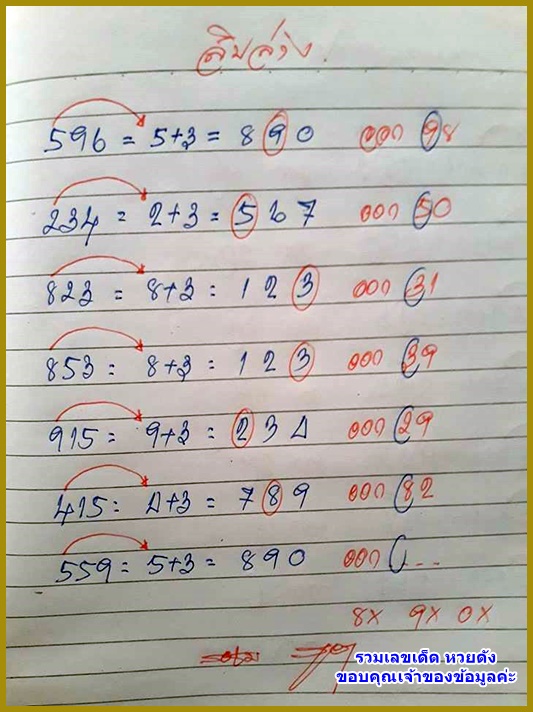 สิบล่าง
596 = 5+3 = 890 ออก 98
234 = 2+3 = 567 ออก 50
823 = 8+3 = 123 ออก 31
853 = 8+3 = 123 ออก 39
915 = 9+3 = 234 ออก 29
415 = 4+3 = 789 ออก 82
559 = 5+3 = 890 ออก (...
8x 9x 0x
รวมเลขเด็ด หวยดัง
ขอบคุณเจ้าของข้อมูลค่ะ